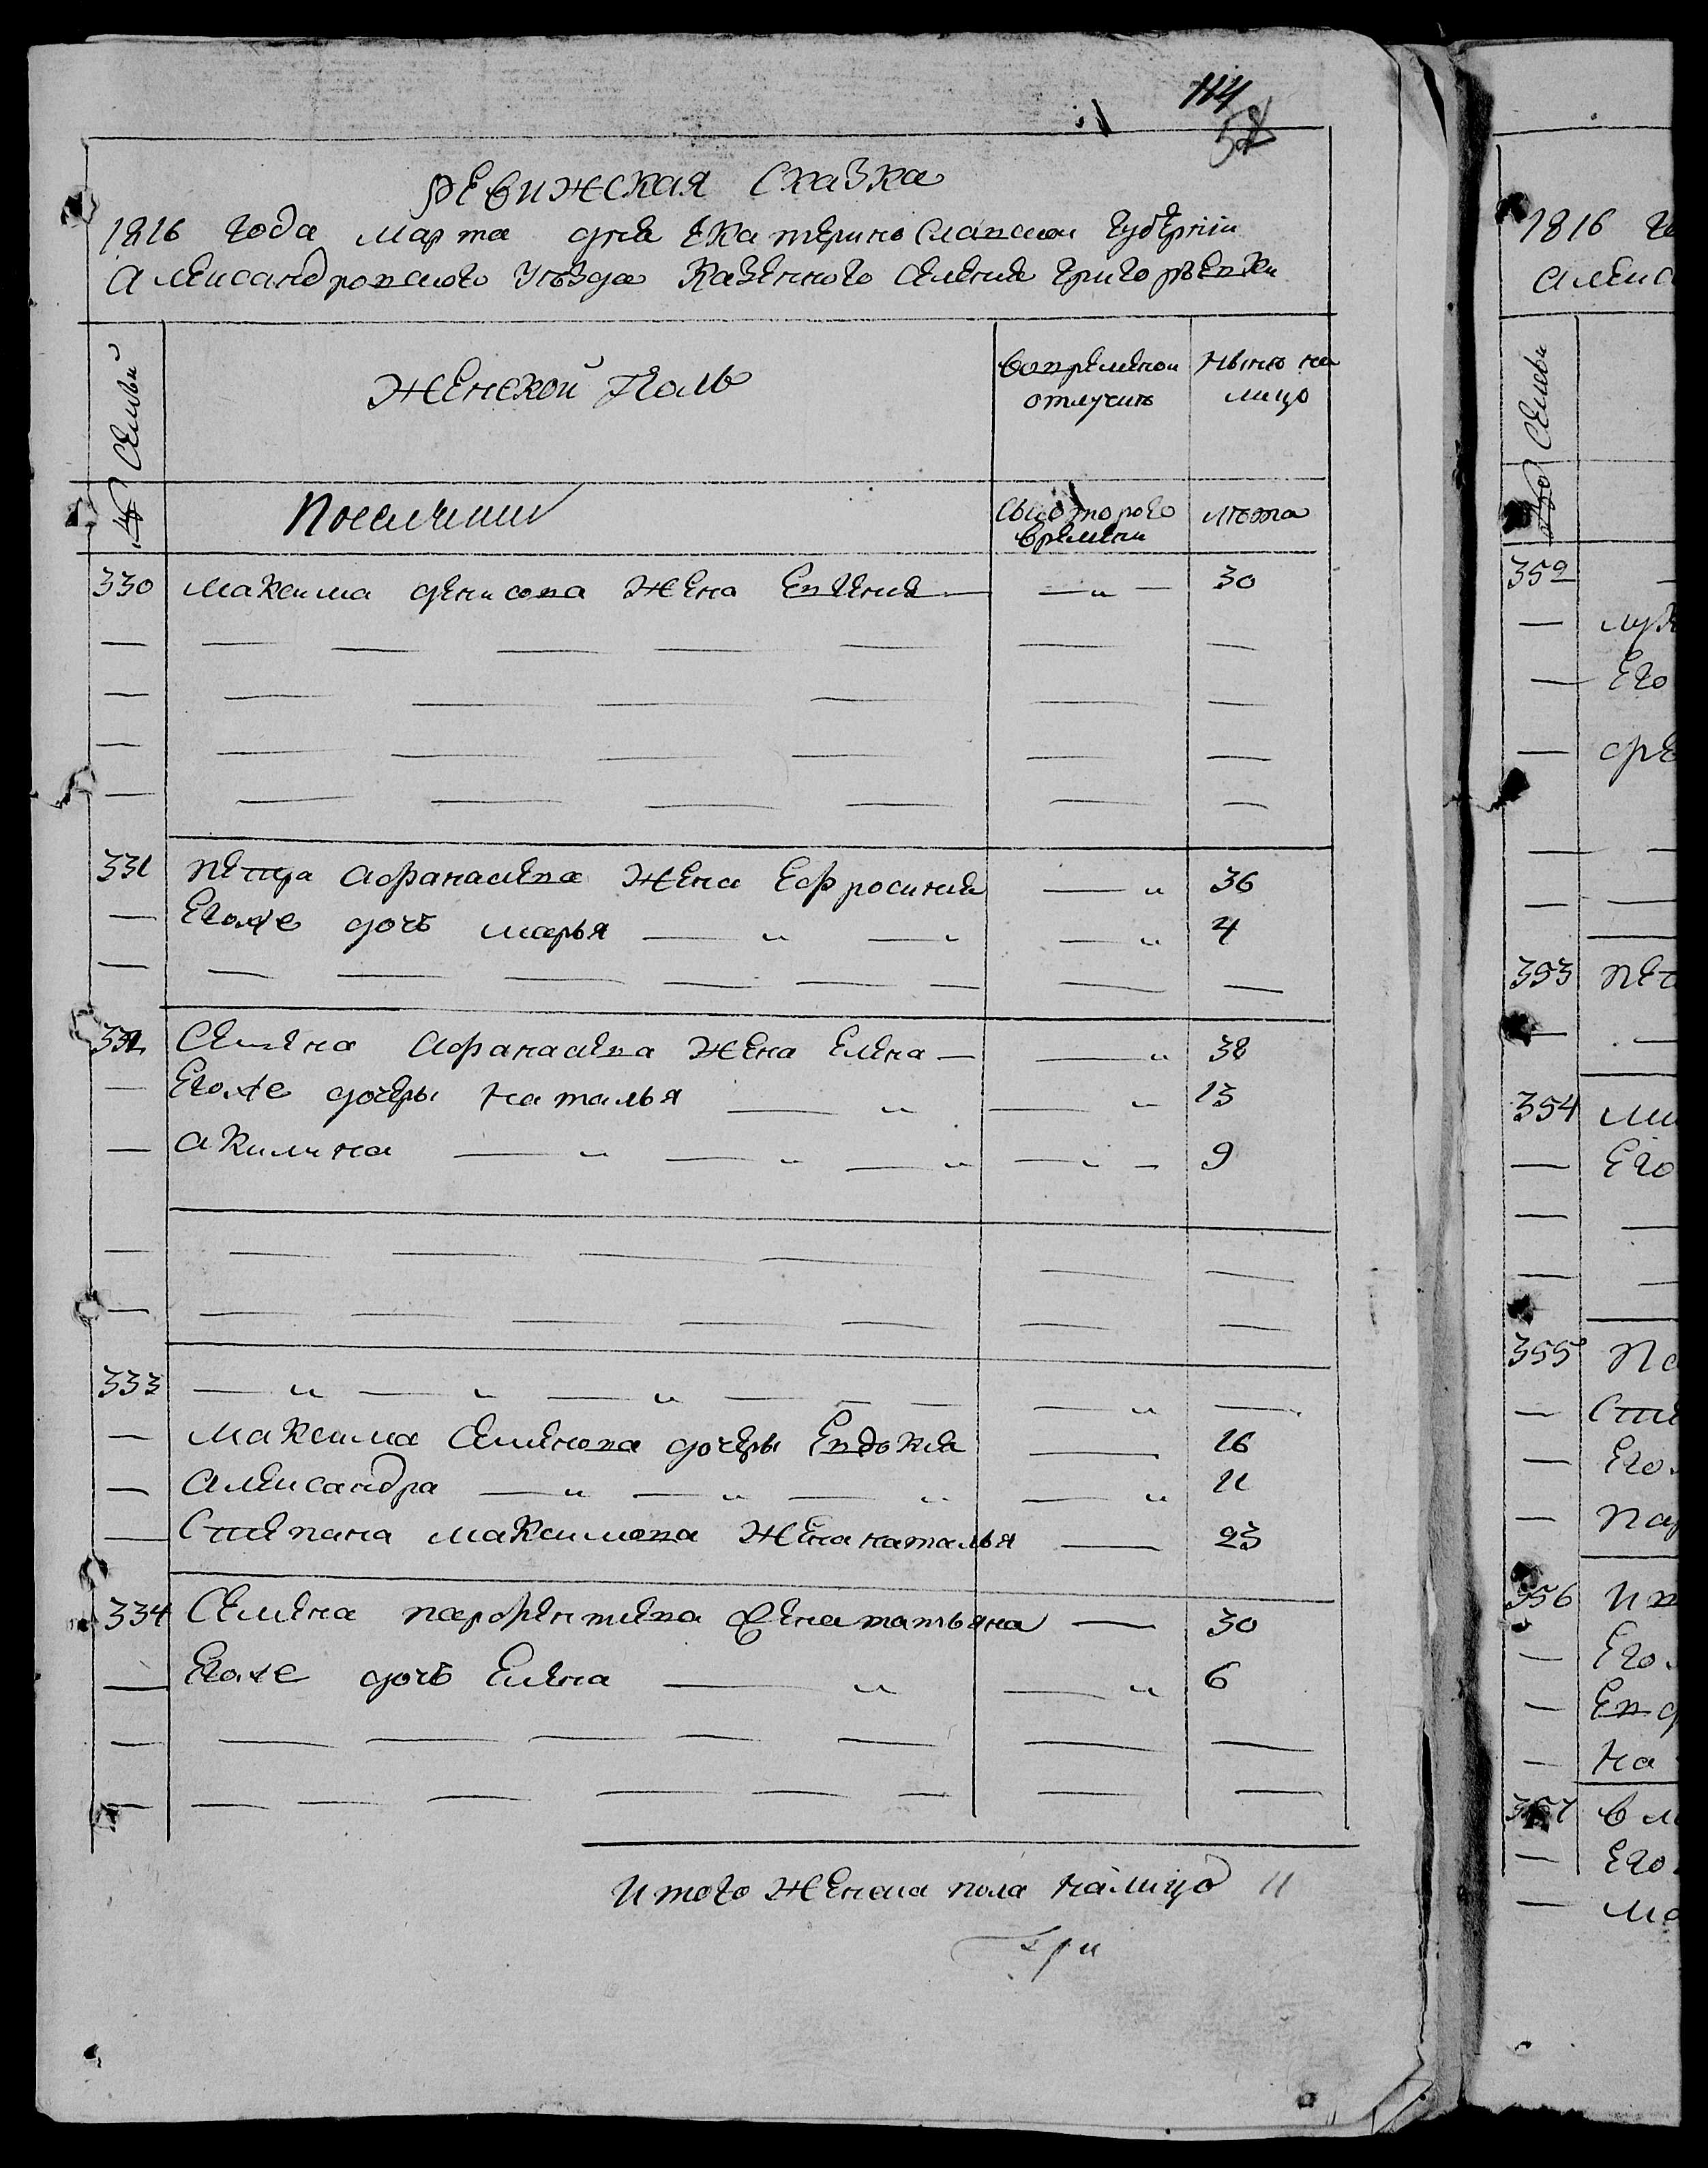 114
58
РЕвижская Сказка
1816 года марта дня Екатеринославской губернии
Александровского уезда Казенного селения Григорьевки
№ Семьи
Женской Полъ
во временной отлучке
Ныне на лицо
Поселяни
с которого времени
лета
330 Максима Денисова жена Евгения — — „ — 30
331 Петра Афанасьева жена Ефросиния — „ 36
— Егоже дочь марья — „ — „ — „ 4
332 Семена Афанасьева жена Елена — — „ 38
— Егоже дочеры Наталья — „ — „ 13
— Акилина — „ — „ — „ — „ — 9
333 — „ — „ — „ — — — — „ —
— Максима Семенова дочеры Евдокия — 16
— Александра — „ — „ — „ — „ 11
— Степана Максимова жена наталья — 23
334 Семена парфентиева жена татьяна — 30
— Егоже дочь Елена — „ — „ 6
Итого женска пола налицо 11
1816
352
Его
353
354
— Его
355
— Его
356
— Его
На
357
— Его